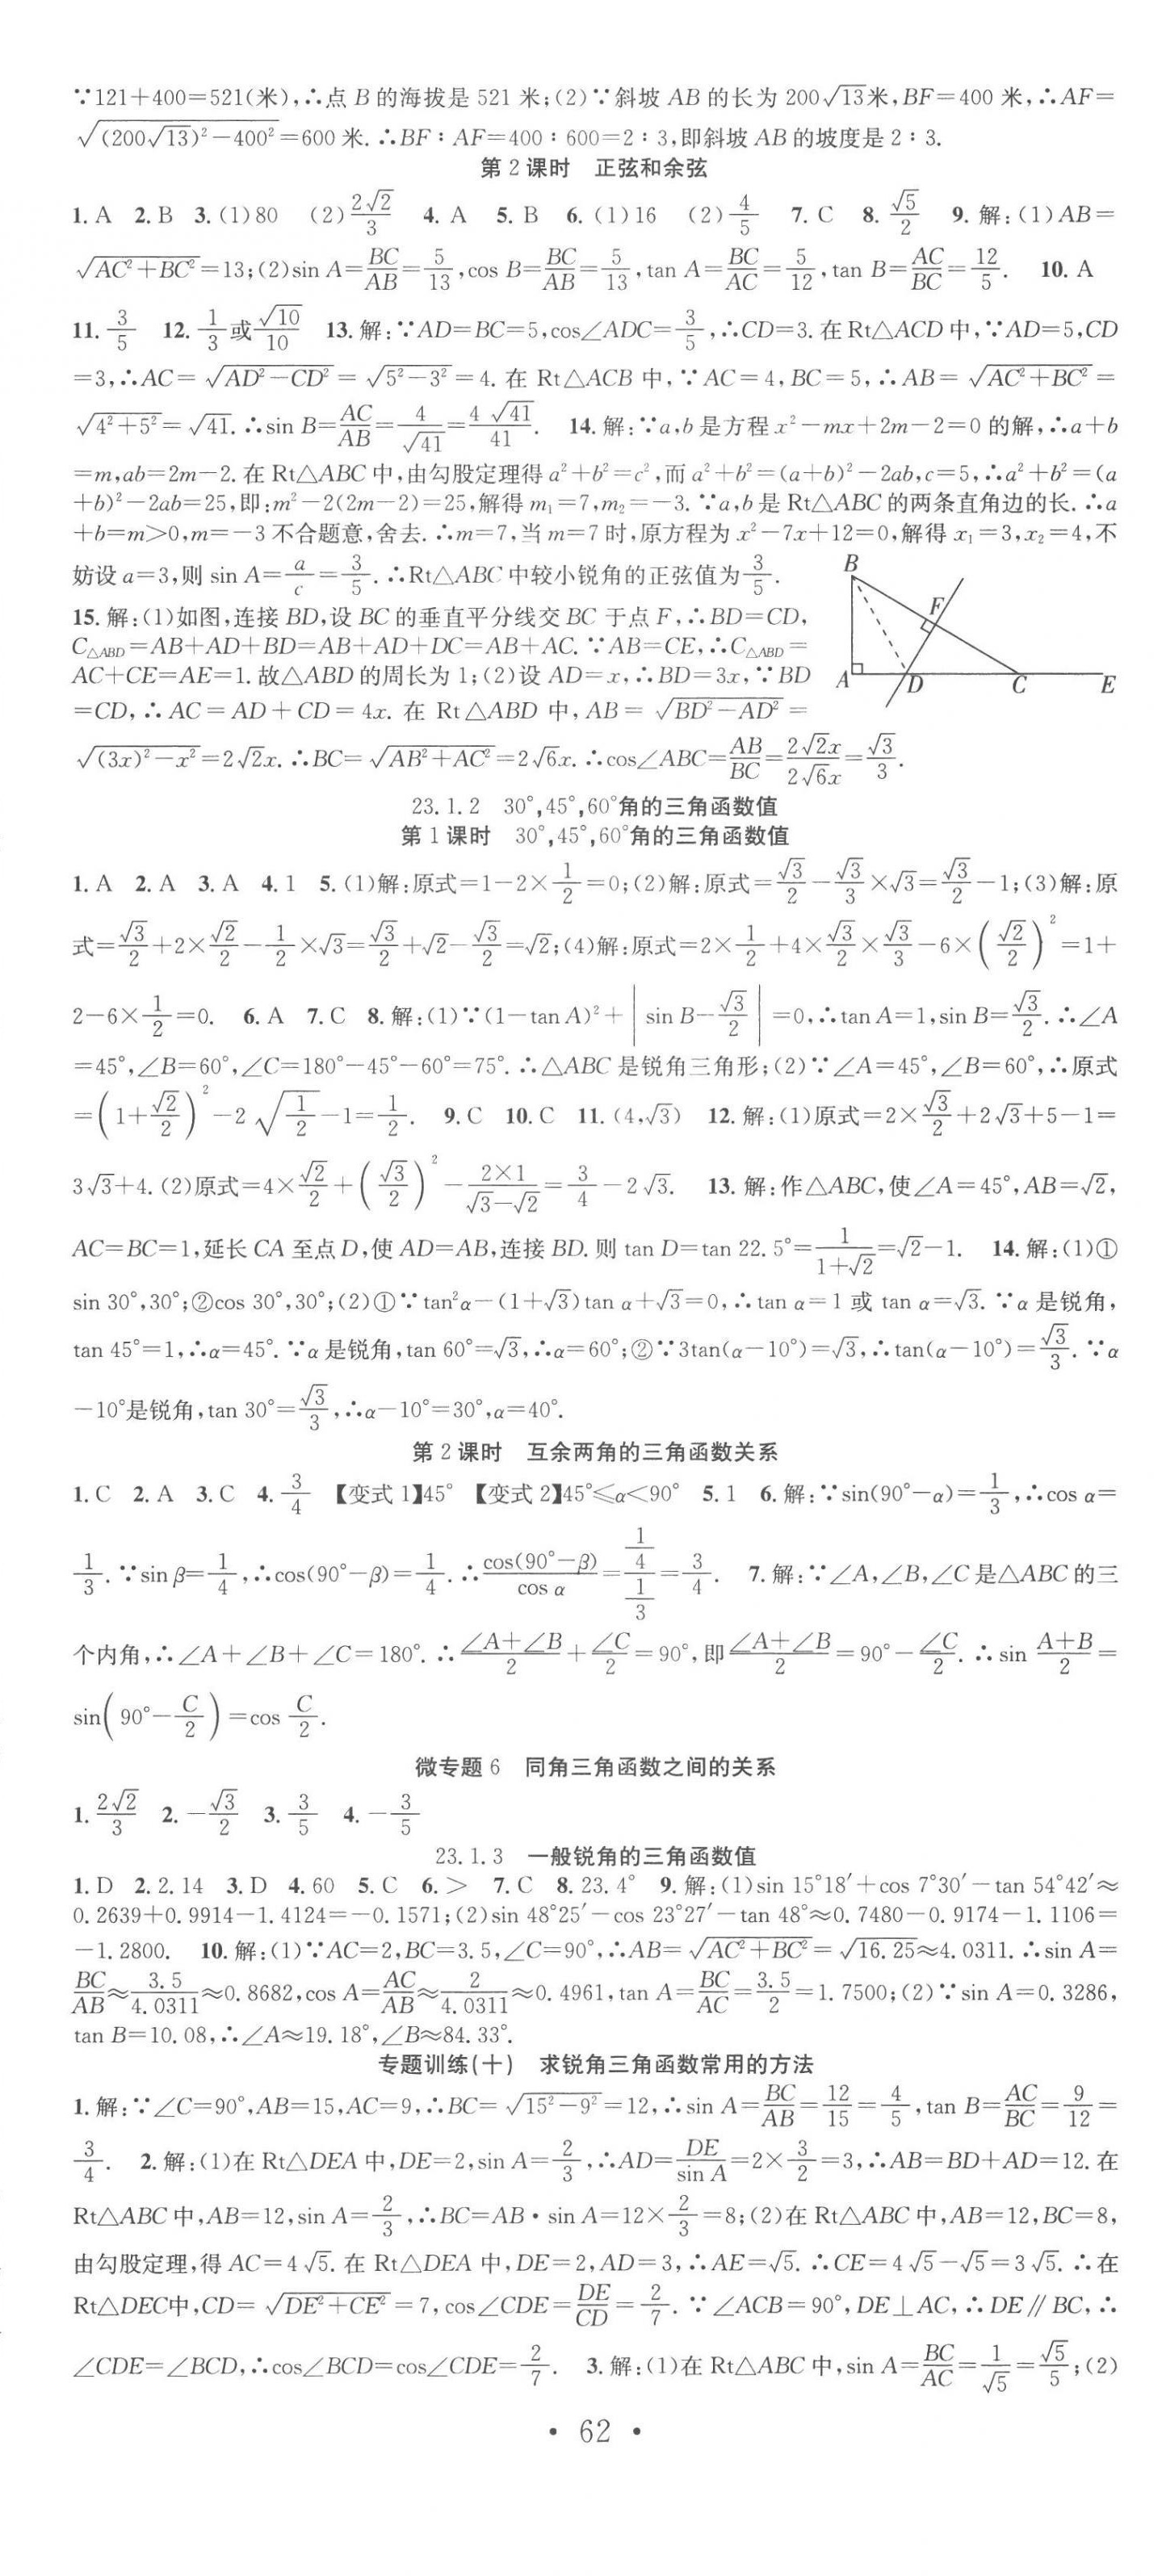 ∵121+400=521(米),∴点 B 的海拔是 521 米;(2)∵斜坡 AB 的长为 200√13米,BF=400 米,∴AF=
√((200√13)²-400²)=600 米.∴BF∶AF=400∶600=2∶3,即斜坡 AB 的坡度是 2∶3.
第 2 课时 正弦和余弦
1. A 2. B 3. (1)80 (2)2√2/3 4. A 5. B 6. (1)16 (2)4/5 7. C 8. √5/2 9. 解:(1)AB=
√(AC²+BC²)=13;(2)sin A=BC/AB=5/13,cos B=BC/AB=5/13,tan A=BC/AC=5/12,tan B=AC/BC=12/5. 10. A
11. 3/5 12. 1/3或√10/10 13. 解:∵AD=BC=5,cos∠ADC=3/5,∴CD=3.在 Rt△ACD 中,∵AD=5,CD
=3,∴AC=√(AD²-CD²)=√(5²-3²)=4.在 Rt△ACB 中,∵AC=4,BC=5,∴AB=√(AC²+BC²)=
√(4²+5²)=√41.∴sin B=AC/AB=4/√41=4√41/41. 14. 解:∵a,b 是方程 x²-mx+2m-2=0 的解,∴a+b
=m,ab=2m-2.在 Rt△ABC 中,由勾股定理得 a²+b²=c²,而 a²+b²=(a+b)²-2ab,c=5,∴a²+b²=(a
+b)²-2ab=25,即:m²-2(2m-2)=25,解得 m₁=7,m₂=-3.∵a,b 是 Rt△ABC 的两条直角边的长.∴a
+b=m>0,m=-3 不合题意,舍去.∴m=7,当 m=7 时,原方程为 x²-7x+12=0,解得 x₁=3,x₂=4,不
妨设 a=3,则 sin A=a/c=3/5.∴Rt△ABC 中较小锐角的正弦值为3/5.
B
F
A
D
C
E
15. 解:(1)如图,连接 BD,设 BC 的垂直平分线交 BC 于点 F,∴BD=CD,
C△ABD=AB+AD+BD=AB+AD+DC=AB+AC.∵AB=CE,∴C△ABD=
AC+CE=AE=1.故△ABD 的周长为 1;(2)设 AD=x,∴BD=3x,∵BD
=CD,∴AC=AD+CD=4x.在 Rt△ABD 中,AB=√(BD²-AD²)=
√((3x)²-x²)=2√2x.∴BC=√(AB²+AC²)=2√6x.∴cos∠ABC=AB/BC=2√2x/2√6x=√3/3.
23.1.2 30°,45°,60°角的三角函数值
第 1 课时 30°,45°,60°角的三角函数值
1. A 2. A 3. A 4. 1 5. (1)解:原式=1-2×1/2=0;(2)解:原式=√3/2-√3/3×√3=√3/2-1;(3)解:原
式=√3/2+2×√2/2-1/2×√3=√3/2+√2-√3/2=√2;(4)解:原式=2×1/2+4×√3/2×√3/3-6×(√2/2)²=1+
2-6×1/2=0. 6. A 7. C 8. 解:(1)∵(1-tan A)²+|sin B-√3/2|=0,∴tan A=1,sin B=√3/2.∴∠A
=45°,∠B=60°,∠C=180°-45°-60°=75°.∴△ABC 是锐角三角形;(2)∵∠A=45°,∠B=60°,∴原式
=(1+√2/2)²-2√(1/2)-1=1/2. 9. C 10. C 11. (4,√3) 12. 解:(1)原式=2×√3/2+2√3+5-1=
3√3+4.(2)原式=4×√2/2+(√3/2)²-2×1/(√3-√2)=3/4-2√3. 13. 解:作△ABC,使∠A=45°,AB=√2,
AC=BC=1,延长 CA 至点 D,使 AD=AB,连接 BD.则 tan D=tan 22.5°=1/(1+√2)=√2-1. 14. 解:(1)①
sin 30°,30°;②cos 30°,30°;(2)①∵tan²α-(1+√3)tan α+√3=0,∴tan α=1 或 tan α=√3.∵α 是锐角,
tan 45°=1,∴α=45°.∵α 是锐角,tan 60°=√3,∴α=60°;②∵3tan(α-10°)=√3,∴tan(α-10°)=√3/3.∵α
-10°是锐角,tan 30°=√3/3,∴α-10°=30°,α=40°.
第 2 课时 互余两角的三角函数关系
1. C 2. A 3. C 4. 3/4 【变式 1】45° 【变式 2】45°≤α<90° 5. 1 6. 解:∵sin(90°-α)=1/3,∴cos α=
1/3.∵sin β=1/4,∴cos(90°-β)=1/4.∴cos(90°-β)/cos α=(1/4)/(1/3)=3/4. 7. 解:∵∠A,∠B,∠C 是△ABC 的三
个内角,∴∠A+∠B+∠C=180°.∴(∠A+∠B)/2+∠C/2=90°,即(∠A+∠B)/2=90°-∠C/2.∴sin (A+B)/2=
sin(90°-C/2)=cos C/2.
微专题 6 同角三角函数之间的关系
1. 2√2/3 2. -√3/2 3. 3/5 4. -3/5
23.1.3 一般锐角的三角函数值
1. D 2. 2.14 3. D 4. 60 5. C 6. > 7. C 8. 23.4° 9. 解:(1)sin 15°18′+cos 7°30′-tan 54°42′≈
0.2639+0.9914-1.4124=-0.1571;(2)sin 48°25′-cos 23°27′-tan 48°≈0.7480-0.9174-1.1106=
-1.2800. 10. 解:(1)∵AC=2,BC=3.5,∠C=90°,∴AB=√(AC²+BC²)=√16.25≈4.0311.∴sin A=
BC/AB≈3.5/4.0311≈0.8682,cos A=AC/AB≈2/4.0311≈0.4961,tan A=BC/AC=3.5/2=1.7500;(2)∵sin A=0.3286,
tan B=10.08,∴∠A≈19.18°,∠B≈84.33°.
专题训练(十) 求锐角三角函数常用的方法
1. 解:∵∠C=90°,AB=15,AC=9,∴BC=√(15²-9²)=12,∴sin A=BC/AB=12/15=4/5,tan B=AC/BC=9/12=
3/4. 2. 解:(1)在 Rt△DEA 中,DE=2,sin A=2/3,∴AD=DE/sin A=2×3/2=3,∴AB=BD+AD=12.在
Rt△ABC 中,AB=12,sin A=2/3,∴BC=AB·sin A=12×2/3=8;(2)在 Rt△ABC 中,AB=12,BC=8,
由勾股定理,得 AC=4√5.在 Rt△DEA 中,DE=2,AD=3,∴AE=√5.∴CE=4√5-√5=3√5.∴在
Rt△DEC中,CD=√(DE²+CE²)=7,cos∠CDE=DE/CD=2/7.∵∠ACB=90°,DE⊥AC,∴DE∥BC,∴
∠CDE=∠BCD,∴cos∠BCD=cos∠CDE=2/7. 3. 解:(1)在 Rt△ABC 中,sin A=BC/AC=1/√5=√5/5;(2)
· 62 ·